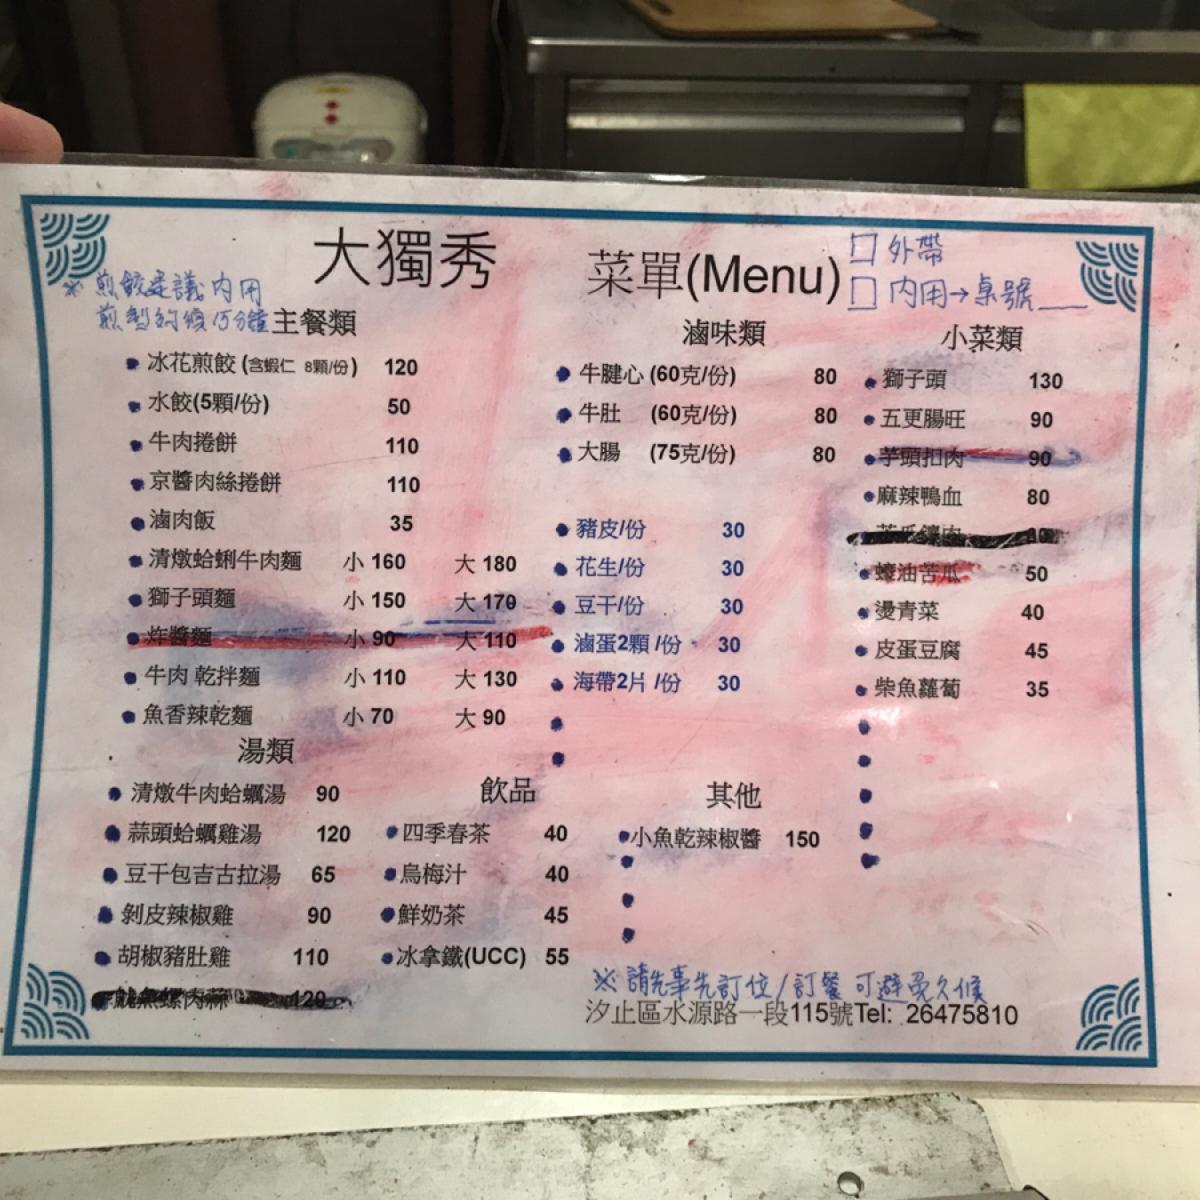 大獨秀 菜單(Menu)
□ 外帶
□ 內用→桌號___
※ 煎餃建議內用
煎製約須15分鐘
主餐類
冰花煎餃 (含蝦仁 8顆/份) 120
水餃(5顆/份) 50
牛肉捲餅 110
京醬肉絲捲餅 110
滷肉飯 35
清燉蛤蜊牛肉麵 小 160 大 180
獅子頭麵 小 150 大 170
炸醬麵 小 90 大 110
牛肉 乾拌麵 小 110 大 130
魚香辣乾麵 小 70 大 90
湯類
清燉牛肉蛤蠣湯 90
蒜頭蛤蠣雞湯 120
豆干包吉古拉湯 65
剝皮辣椒雞 90
胡椒豬肚雞 110
魷魚螺肉蒜 120
飲品
四季春茶 40
烏梅汁 40
鮮奶茶 45
冰拿鐵(UCC) 55
滷味類
牛腱心 (60克/份) 80
牛肚 (60克/份) 80
大腸 (75克/份) 80
豬皮/份 30
花生/份 30
豆干/份 30
滷蛋2顆 /份 30
海帶2片 /份 30
其他
小魚乾辣椒醬 150
小菜類
獅子頭 130
五更腸旺 90
芋頭扣肉 90
麻辣鴨血 80
蠔油苦瓜 50
燙青菜 40
皮蛋豆腐 45
柴魚蘿蔔 35
※ 請先事先訂位/訂餐 可避免久候
汐止區水源路一段115號Tel: 26475810